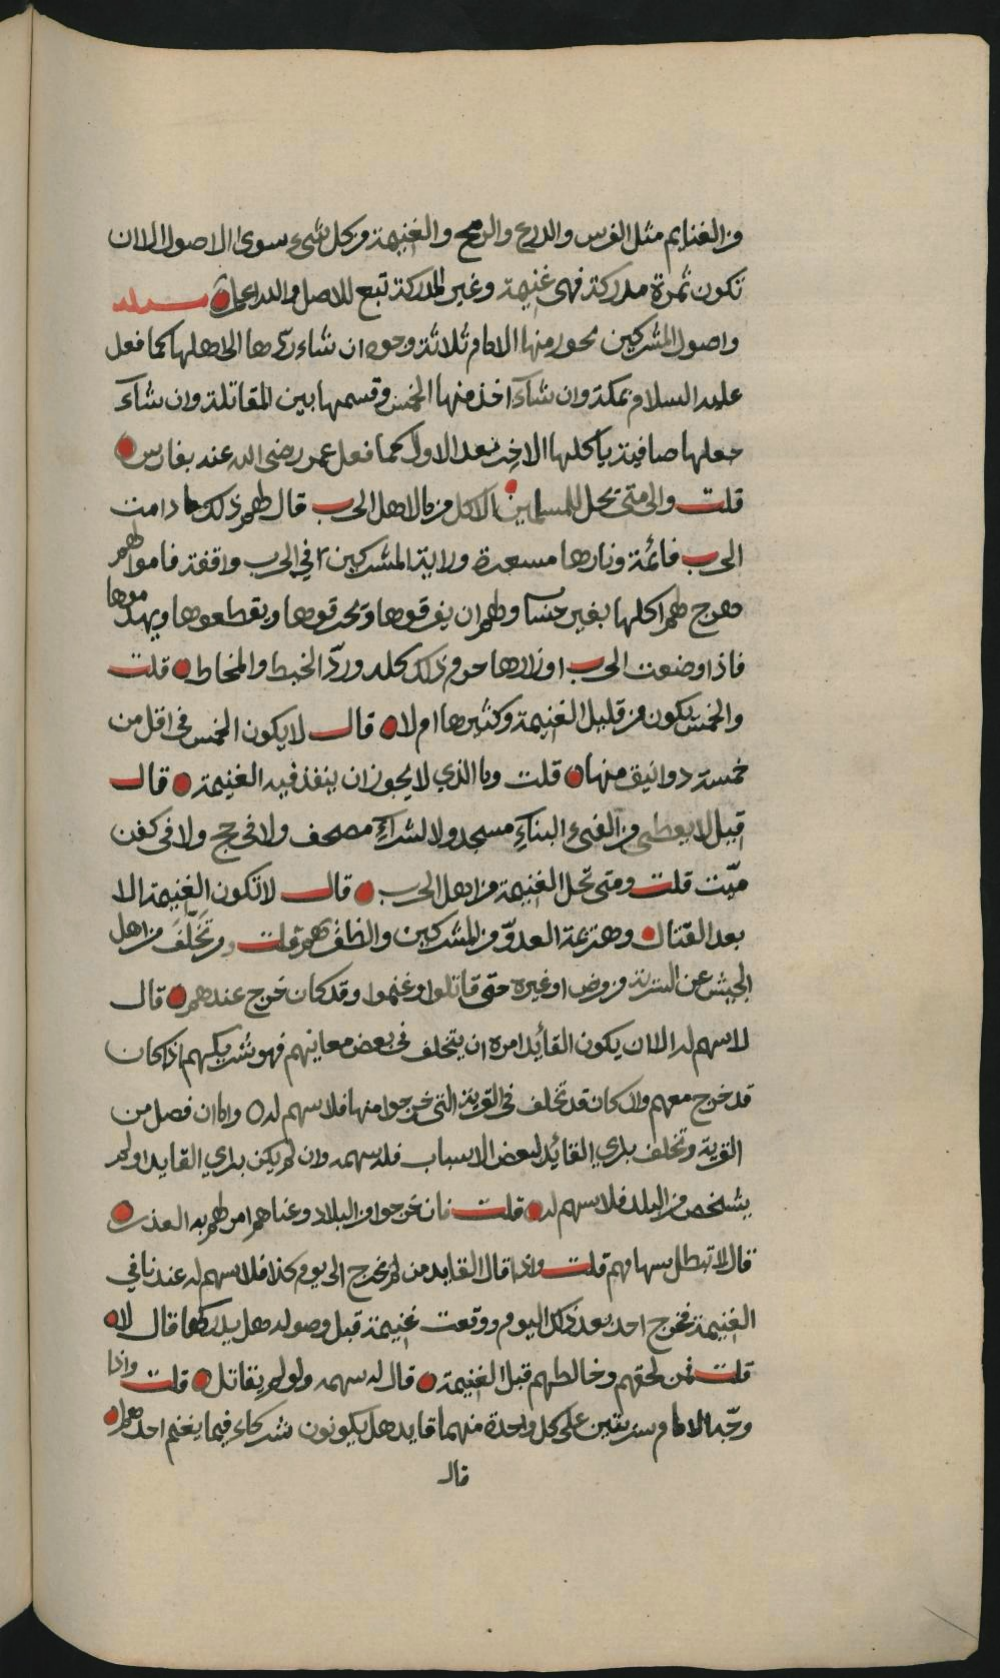 من الغنايم مثل الفرس والدرع والرمح والغنيمة من كل شيء سوى الاصول الا ان
تكون ثمرة مدركة فهى غنيمة وغير المدركة تبع للاصل والله اعلم مسئلة
واصول المشركين يجوز منها الامام ثلاثة وجوه ان شاء ردّها الى اهلها كما فعل
عليه السلام بمكة وان شاء اخذ منها الخمس وقسمها بين المقاتلة وان شاء
جعلها صافية ياكلها الاخِر بعد الاول كما فعل عمر رضى الله عنه بفارس
قلت والى متى يحل للمسلمين الاكل من مال اهل الحرب قال لهم ذلك ما دامت
الحرب قائمة ونارها مسعرة وراية المشركين في الحرب واقفة قاموا لهم
فهو حج لهم اكلها بغير حساب ولهم ان يفرقوها ويحرقوها ويقطعوها ويهدموها
فاذا وضعت الحرب اوزارها حرم ذلك كله وردّ الخيط والمخاط قلت
والخمس يكون من قليل الغنيمة وكثيرها ام لا قال لا يكون الخمس في اقل من
خمسة دوانيق منها قلت وما الذي لا يجوز ان ينفذ فيه الغنيمة قال
قيل لا يعطى من الفيء البناء مسجد ولا لشراء مصحف ولا في حج ولا في كفن
ميّت قلت ومتى تحل الغنيمة من اهل الحرب قال لا تكون الغنيمة الا
بعد القتال وهزيمة العدوّ من المشركين والظفر بهم قلت ومن تخلّف من اهل
الجيش عن السرية من مرض او غيره حتى قاتلوا وغنموا وقد كان خرج عندهم قال
لا سهم له الا ان يكون القائد امره ان يتخلف في بعض معانيهم فهو شريكهم اذا كان
قد خرج معهم وان كان قد تخلف في القرية التى خرجوا منها فلا سهم له واما ان فصل من
القرية وتخلف براي القائد لبعض الاسباب فله سهمه وان لم يكن براي القايد او لم
يشخص من البلد فلا سهم له قلت فان خرجوا من البلاد وعناهم امر لهم به العذر
قال لا تبطل سهامهم قلت واذا قال القايد من لم يخرج الى يوم كذا فلا سهم له عندنا في
الغنيمة فخرج احد بعد ذلك اليوم ووقعت غنيمة قبل وصوله هل يدركها قال لا
قلت فمن لحقهم وخالطهم قبل الغنيمة قال له سهمه ولو لم يقاتل قلت واذا
وجّه الامام سريتين على كل واحدة منهما قايد هل يكونون شركاء فيما يغنم احدهما
قال